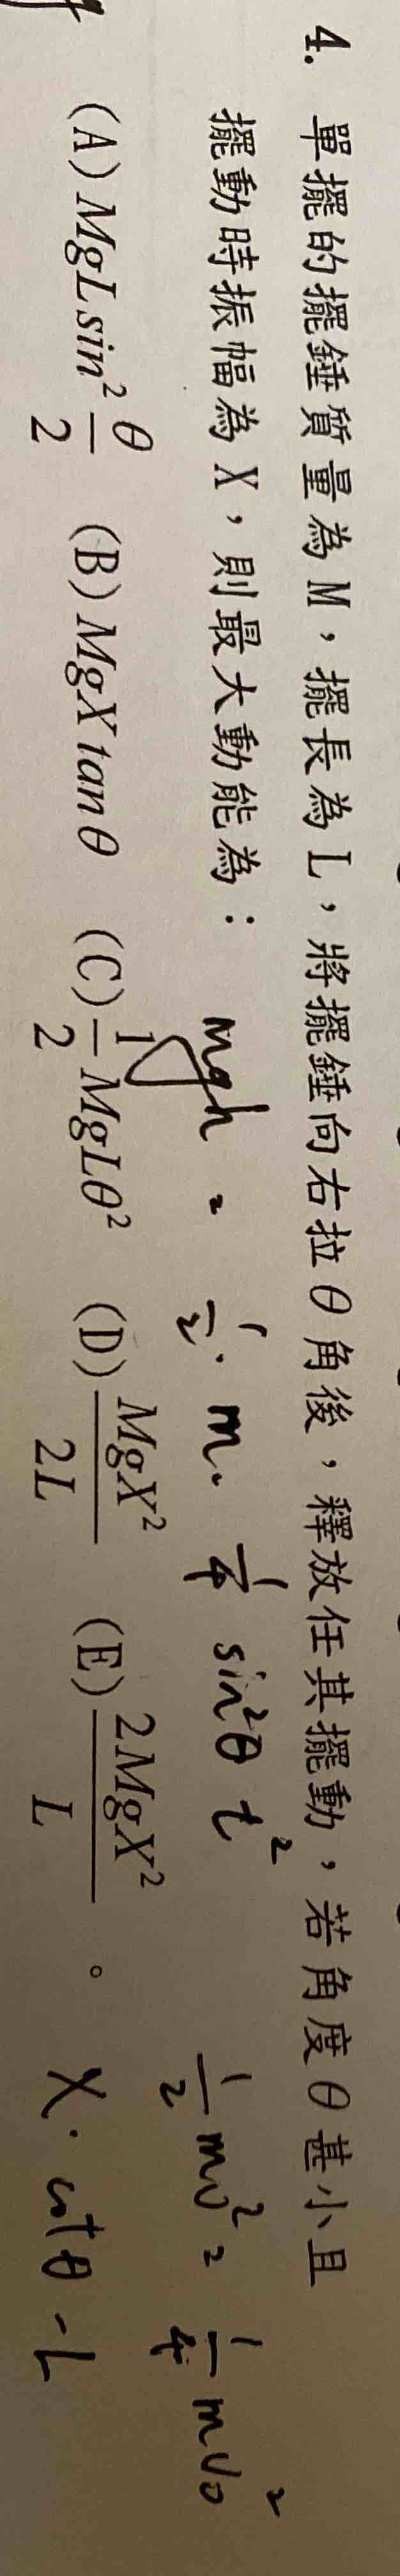 4. 單擺的擺錘質量為 M,擺長為 L,將擺錘向右拉 θ 角後,釋放任其擺動,若角度 θ 甚小且
擺動時振幅為 X,則最大動能為:
mgh = 1/2 · m · 1/4 sin²θ t²
1/2 mv² = 1/4 mv₀²
(A) MgL sin² θ/2 (B) MgX tanθ (C) 1/2 MgLθ² (D) MgX²/2L (E) 2MgX²/L 。
X · cotθ - L